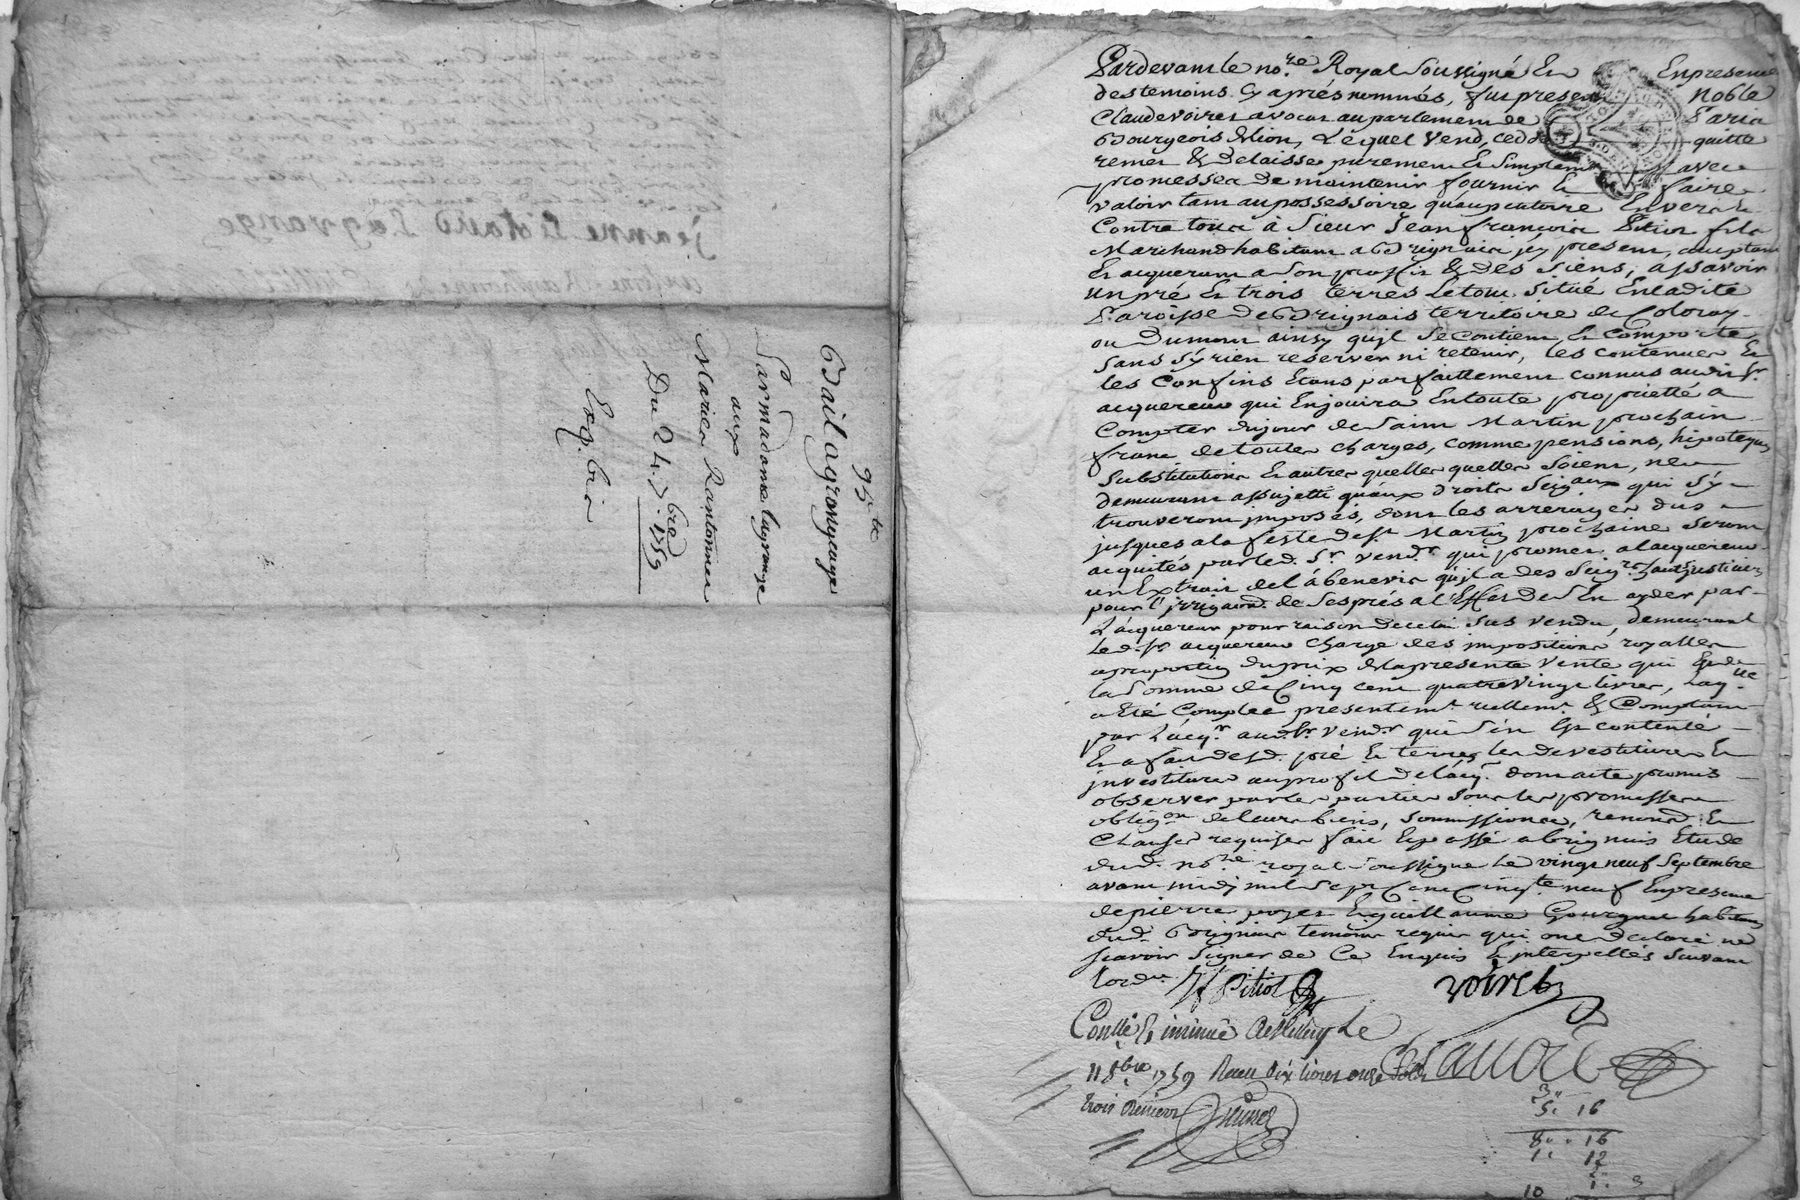 95.te
Bail a grangeage
Par madame lagrange
aux
Mariés Rantonnet
Du 24. 7bre 1759
Exp. bis
Pardevant le no.re Royal Soussigné Et En presence
des temoins Cy aprés nommés, fut present Noble
Claude voiret avocat au parlement de Paris
Bourgeois de lion, Lequel vend, cedde quitte
remet & delaisse purement Et simplement avec
promesses de maintenir fournir Et faire
valoir tant au possessoire qu'au petitoire Envers Et
Contre tous à Sieur Jean françois Pitiot fils
Marchand habitant a Brignais jcy present, acceptant
Et acquerant a son proffit & des Siens, assavoir
un pré Et trois terres Le tout situé En ladite
Paroisse de Brignais territoire de Coloray
ou Dumont ainsy qu'jl se contient Et Comporte
sans s'y rien reserver ni retenir, les contenues Et
les Confins Etans parfaittement connus audit Sr.
acquereur qui Enjouira En toute proprietté a
Compter du jour de Saint Martin prochain
franc de toutes charges, comme pensions, hipoteques
Substitutions Et autres quelles quelles soient, ne
demeurant assujetti qu'aux droits Seig.aux qui s'y
trouveront jmposés, dont les arrerages dus
jusques a la feste de St. Martin prochaine seront
acquités par led. Sr. vend.r qui promet a lacquereur
un Extrait de l'abenevis qu'jl a des Seig.rs hauts Justiciers
pour l'jrrigaon. de ses prés a l'Effet de s'En ayder par
L'acquereur pour raison de celui sus vendu, demeurant
Led. Sr. acquereur chargé des jmpositions royalles
a proportion du prix de la presente vente qui Est de
la somme de Cinq cent quatre vingt livres, laq.lle
a Eté Comptée presentem.t reellem.t & Comptant
par L'acq.r aud. Sr. vend.r qui s'En Est contenté
Et a fait desd. pré Et terres les devestitures Et
jnvestitures au profit de l'acq.r dont acte promis
observer par les parties sous les promesses
oblig.on de leurs biens, soumissions, renond. Et
Clauses requises fait Et passé a brignais Etude
dud. no.re royal soussigné Le vingt neuf Septembre
avant midy mil sept Cent Cinq.te neuf En presence
de pierre poyet Et guillaume Gourgnet habitans
dud. Brignais temoins requis qui ont declaré ne
scavoir signer de Ce Enquis Et jnterpellés suivant
lord.ce JF Pitiot voiret
Conllé Et insinué le
11 8bre 1759 Receu dix livres onze sols
trois deniers
5. 16
8. 16
1. 12
10